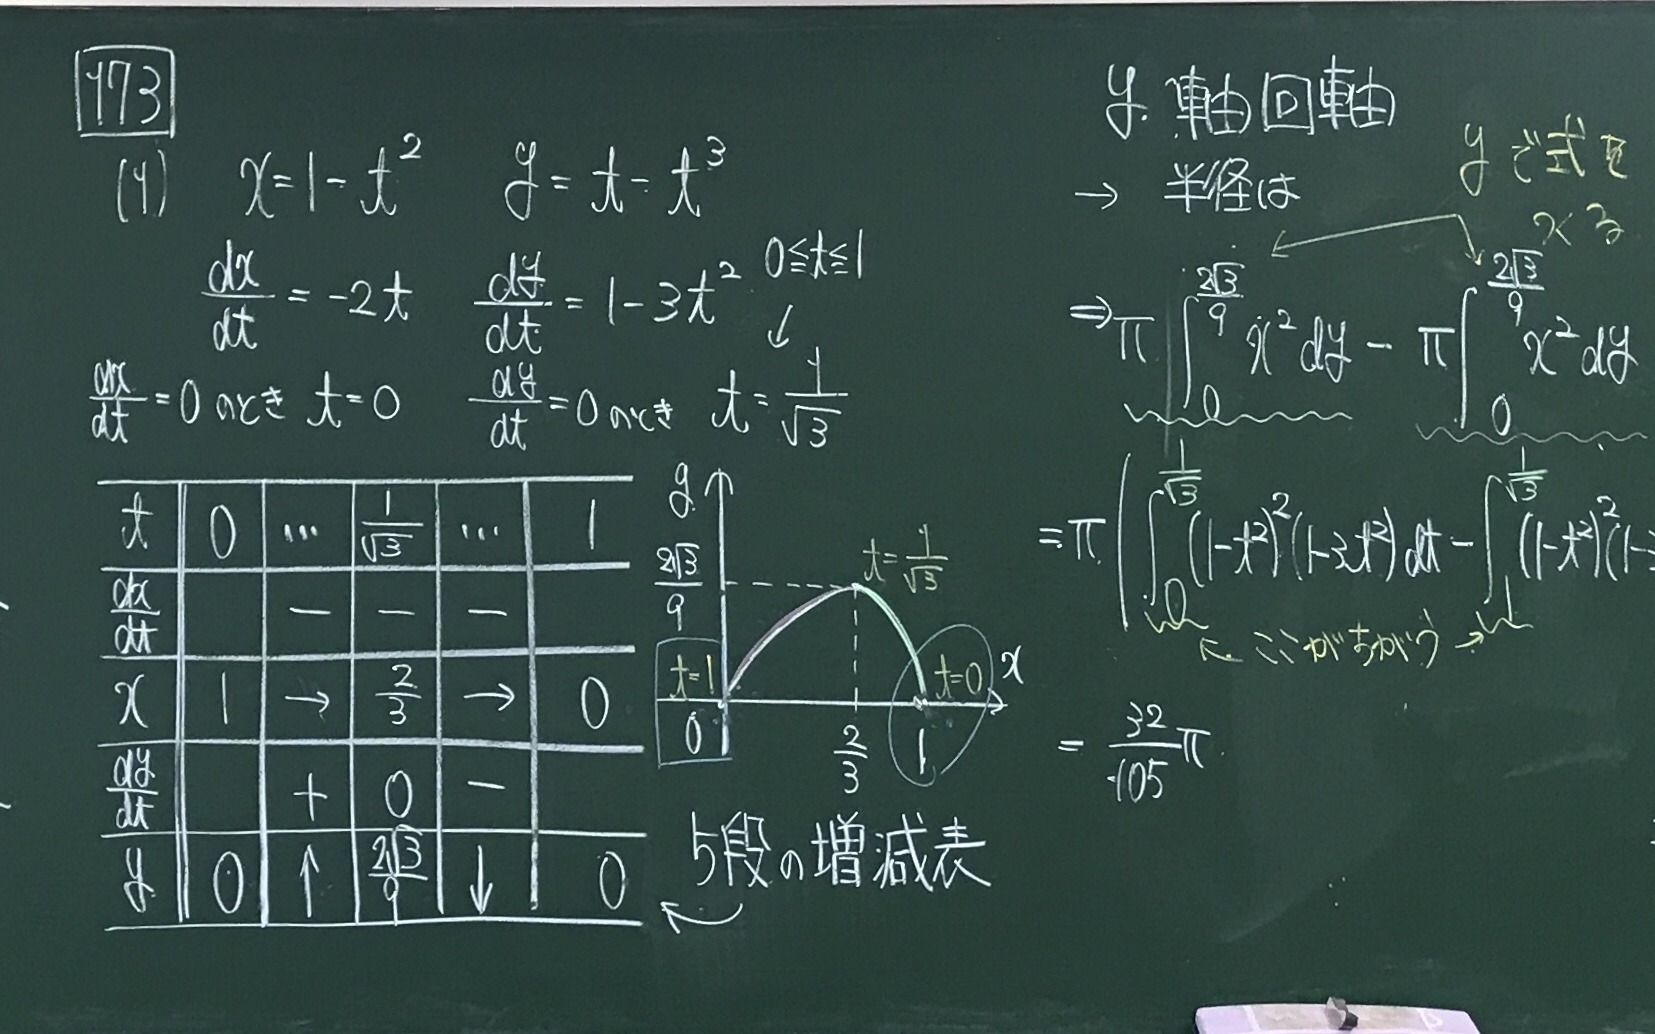 173
(1) x=1-t² y=t-t³
dx/dt=-2t dy/dt=1-3t² 0≦t≦1
↓
dx/dt=0のとき t=0 dy/dt=0のとき t=1/√3
t 0 … 1/√3 … 1
dx/dt − − −
x 1 → 2/3 → 0
dy/dt + 0 −
y 0 ↑ 2√3/9 ↓ 0
y
2√3/9 t=1/√3
t=1 t=0 x
0 2/3 1
5段の増減表
y軸回転
→ 半径は
yで式を
つくる
⇒π∫₀^(2√3/9) x²dy - π∫₀^(2√3/9) x²dy
=π(∫₀^(1/√3) (1-t²)²(1-3t²)dt - ∫₁^(1/√3) (1-t²)²(1-3
← ここがちがう →
= 32/105 π